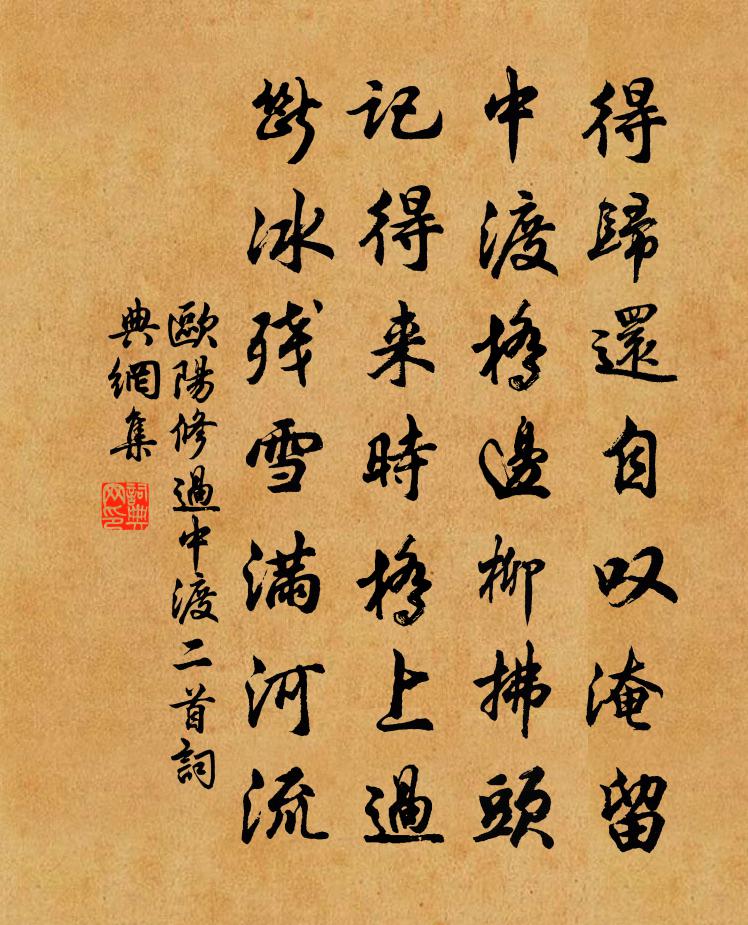 得歸還自叹淹留
中渡橋邊柳拂頭
記得来時橋上過
断冰残雪满河流
歐陽修過中渡二首詞
典網集
詞典
网印